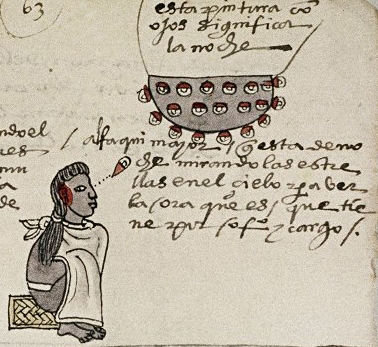 63
esta pintura cō
ojos significa
la noche
ndo el
/ alfaqui mayor / q̄ esta de no
che mirando las estre
llas en el çielo pa ver
la ora que es / que tie
ne por ofº y cargo /.
de